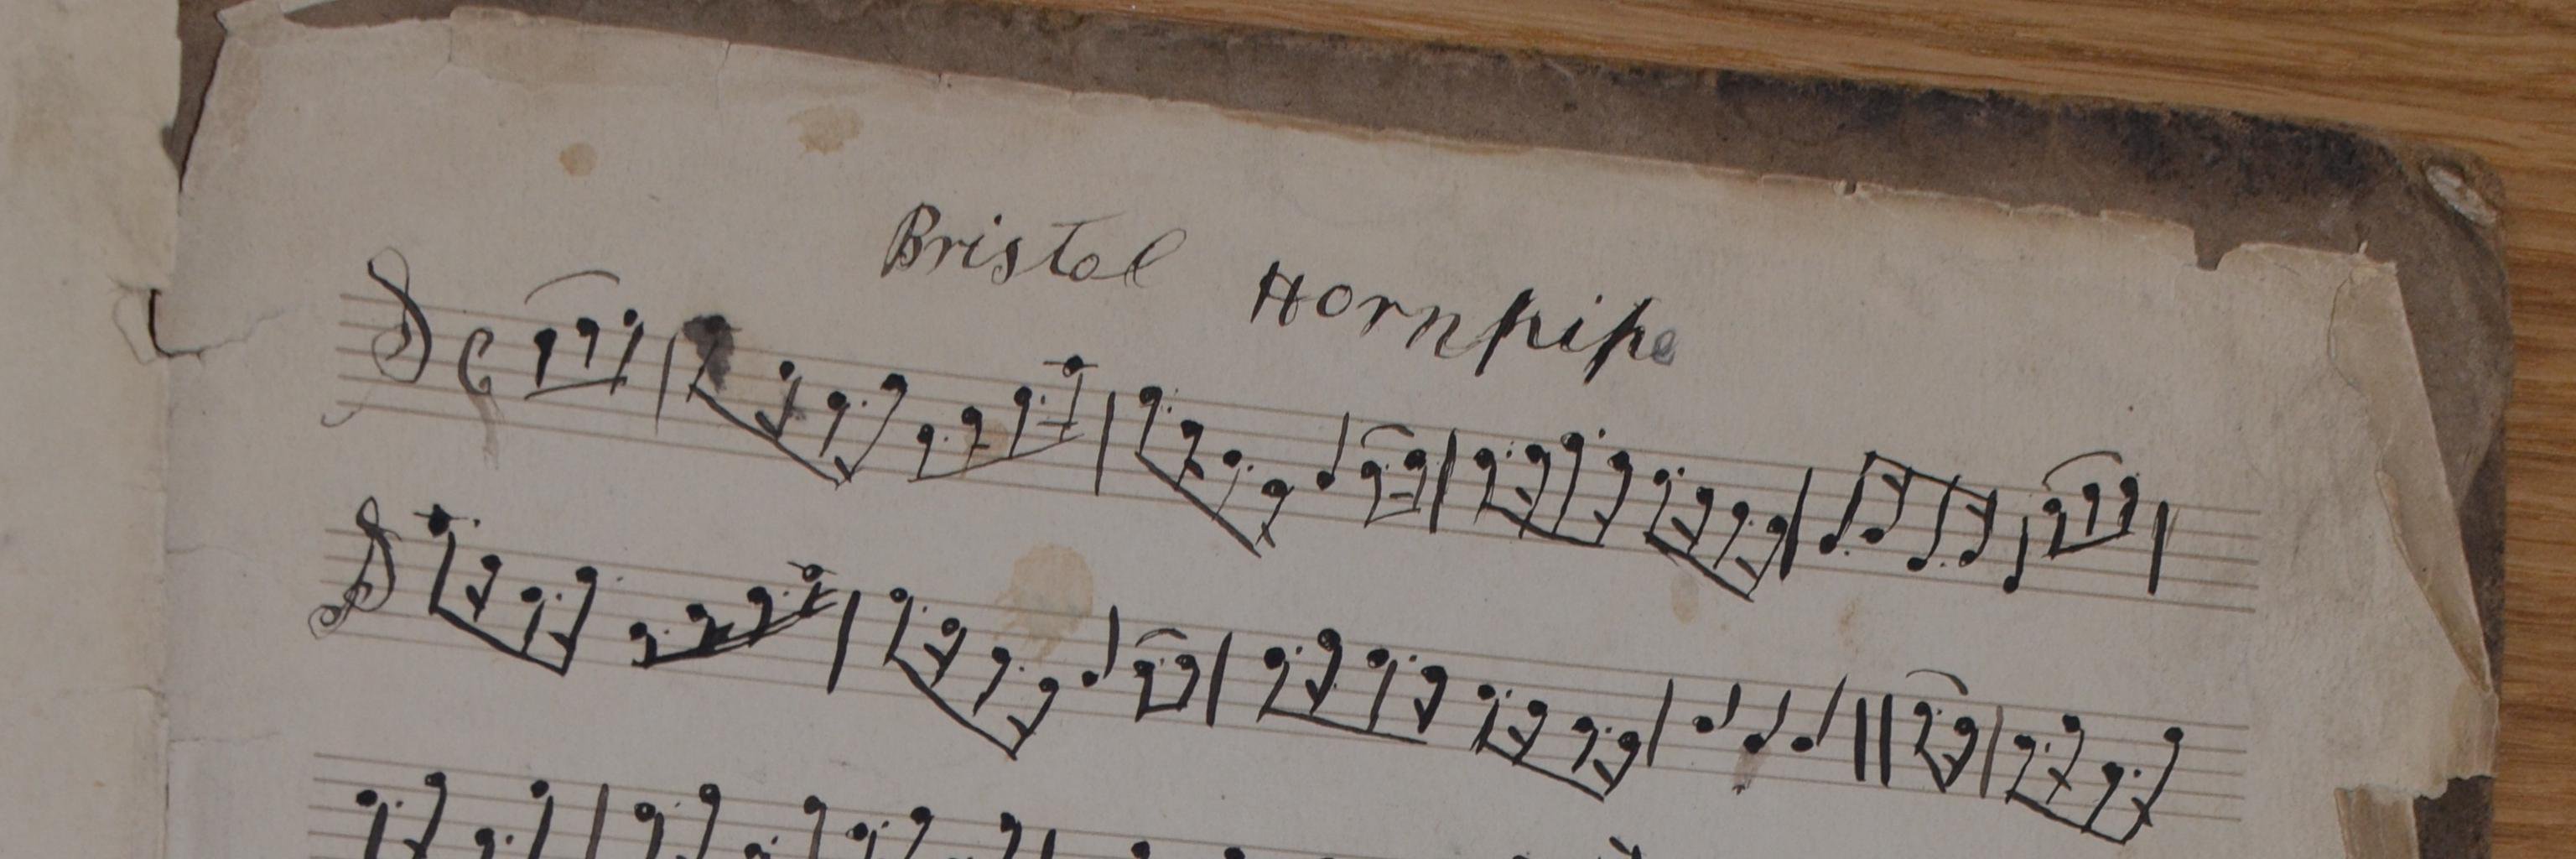 Bristol Hornpipe